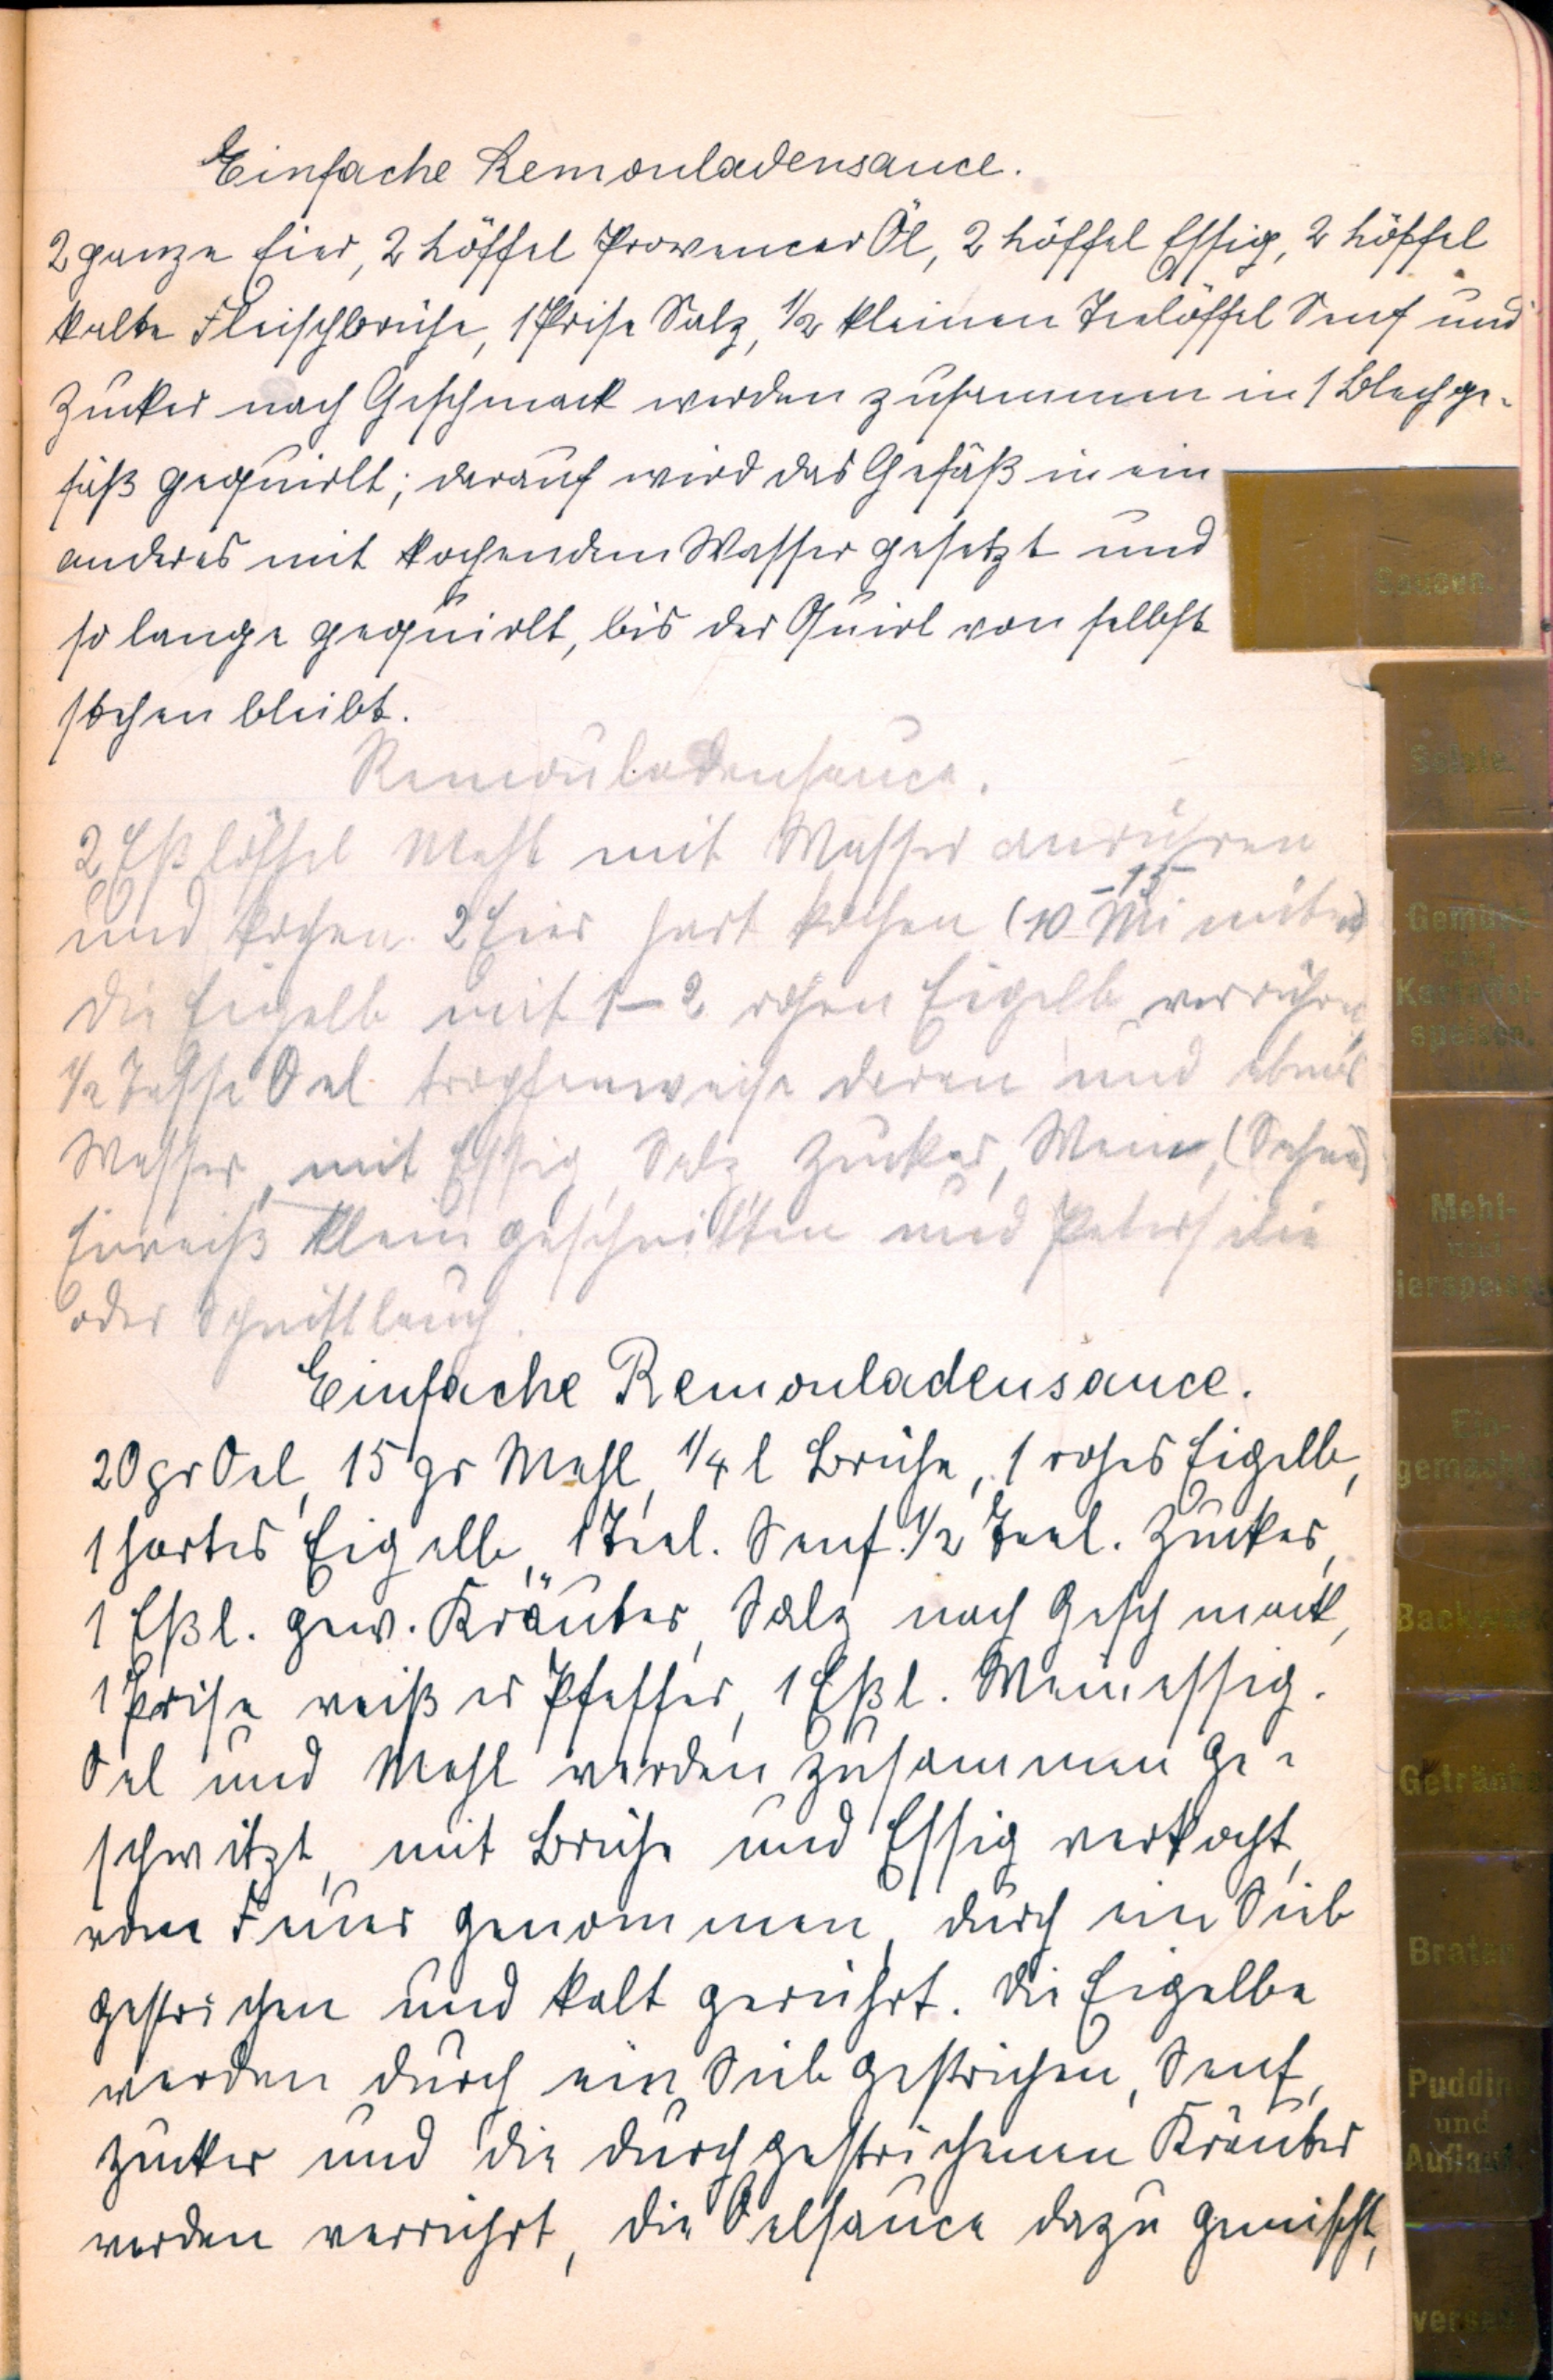 Einfache Remouladensauce.
2 ganze Eier, 2 Löffel Provencer Öl, 2 Löffel Essig, 2 Löffel
kalte Fleischbrühe, 1 Prise Salz, 1/2 kleinen Teelöffel Senf und
Zucker nach Geschmack werden zusammen in 1 Blechge-
fäß gequirlt; darauf wird das Gefäß in ein
anderes mit kochendem Wasser gesetzt und
so lange gequirlt, bis der Quirl von selbst
stehen bleibt.
Remouladensauce.
2 Eßlöffel Mehl mit Wasser anrühren
und kochen. 2 Eier hart kochen (10-15 Minuten)
die Eigelb mit 1-2 rohen Eigelb verrühren,
1/2 Tasse Oel tropfenweise daran und etwas
Wasser, mit Essig, Salz, Zucker, Wein, (Sahne)
Eiweiß klein geschnitten und Petersilie
oder Schnittlauch.
Einfache Remouladensauce.
20 gr Oel, 15 gr Mehl, 1/4 l Brühe, 1 rohes Eigelb,
1 hartes Eigelb, 1 Teel. Senf. 1/2 Teel. Zucker,
1 Eßl. gew. Kräuter, Salz nach Geschmack,
1 Prise weißer Pfeffer, 1 Eßl. Weinessig.
Oel und Mehl werden zusammen ge-
schwitzt, mit Brühe und Essig verkocht,
vom Feuer genommen, durch ein Sieb
gestrichen und kalt gerührt. Die Eigelbe
werden durch ein Sieb gestrichen, Senf,
Zucker und die durchgestrichenen Kräuter
werden verrührt, die Oelsauce dazu gemischt,
Saucen.
Salate.
Gemüse
und
Kartoffel-
speisen.
Mehl-
und
ierspeisen
Ein-
gemacht
Back
Getränk
Braten
Puddin
und
Auflauf
verse